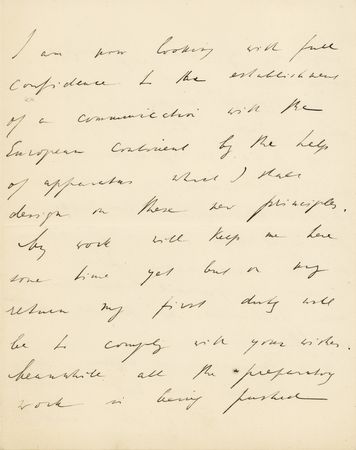 I am now looking with full
confidence to the establishment
of a communication with the
European continent by the help
of apparatus which I shall
design on these new principles.
My work will keep me here
some time yet but on my
return my first duty will
be to comply with your wishes.
Meanwhile all the preparatory
work is being pushed